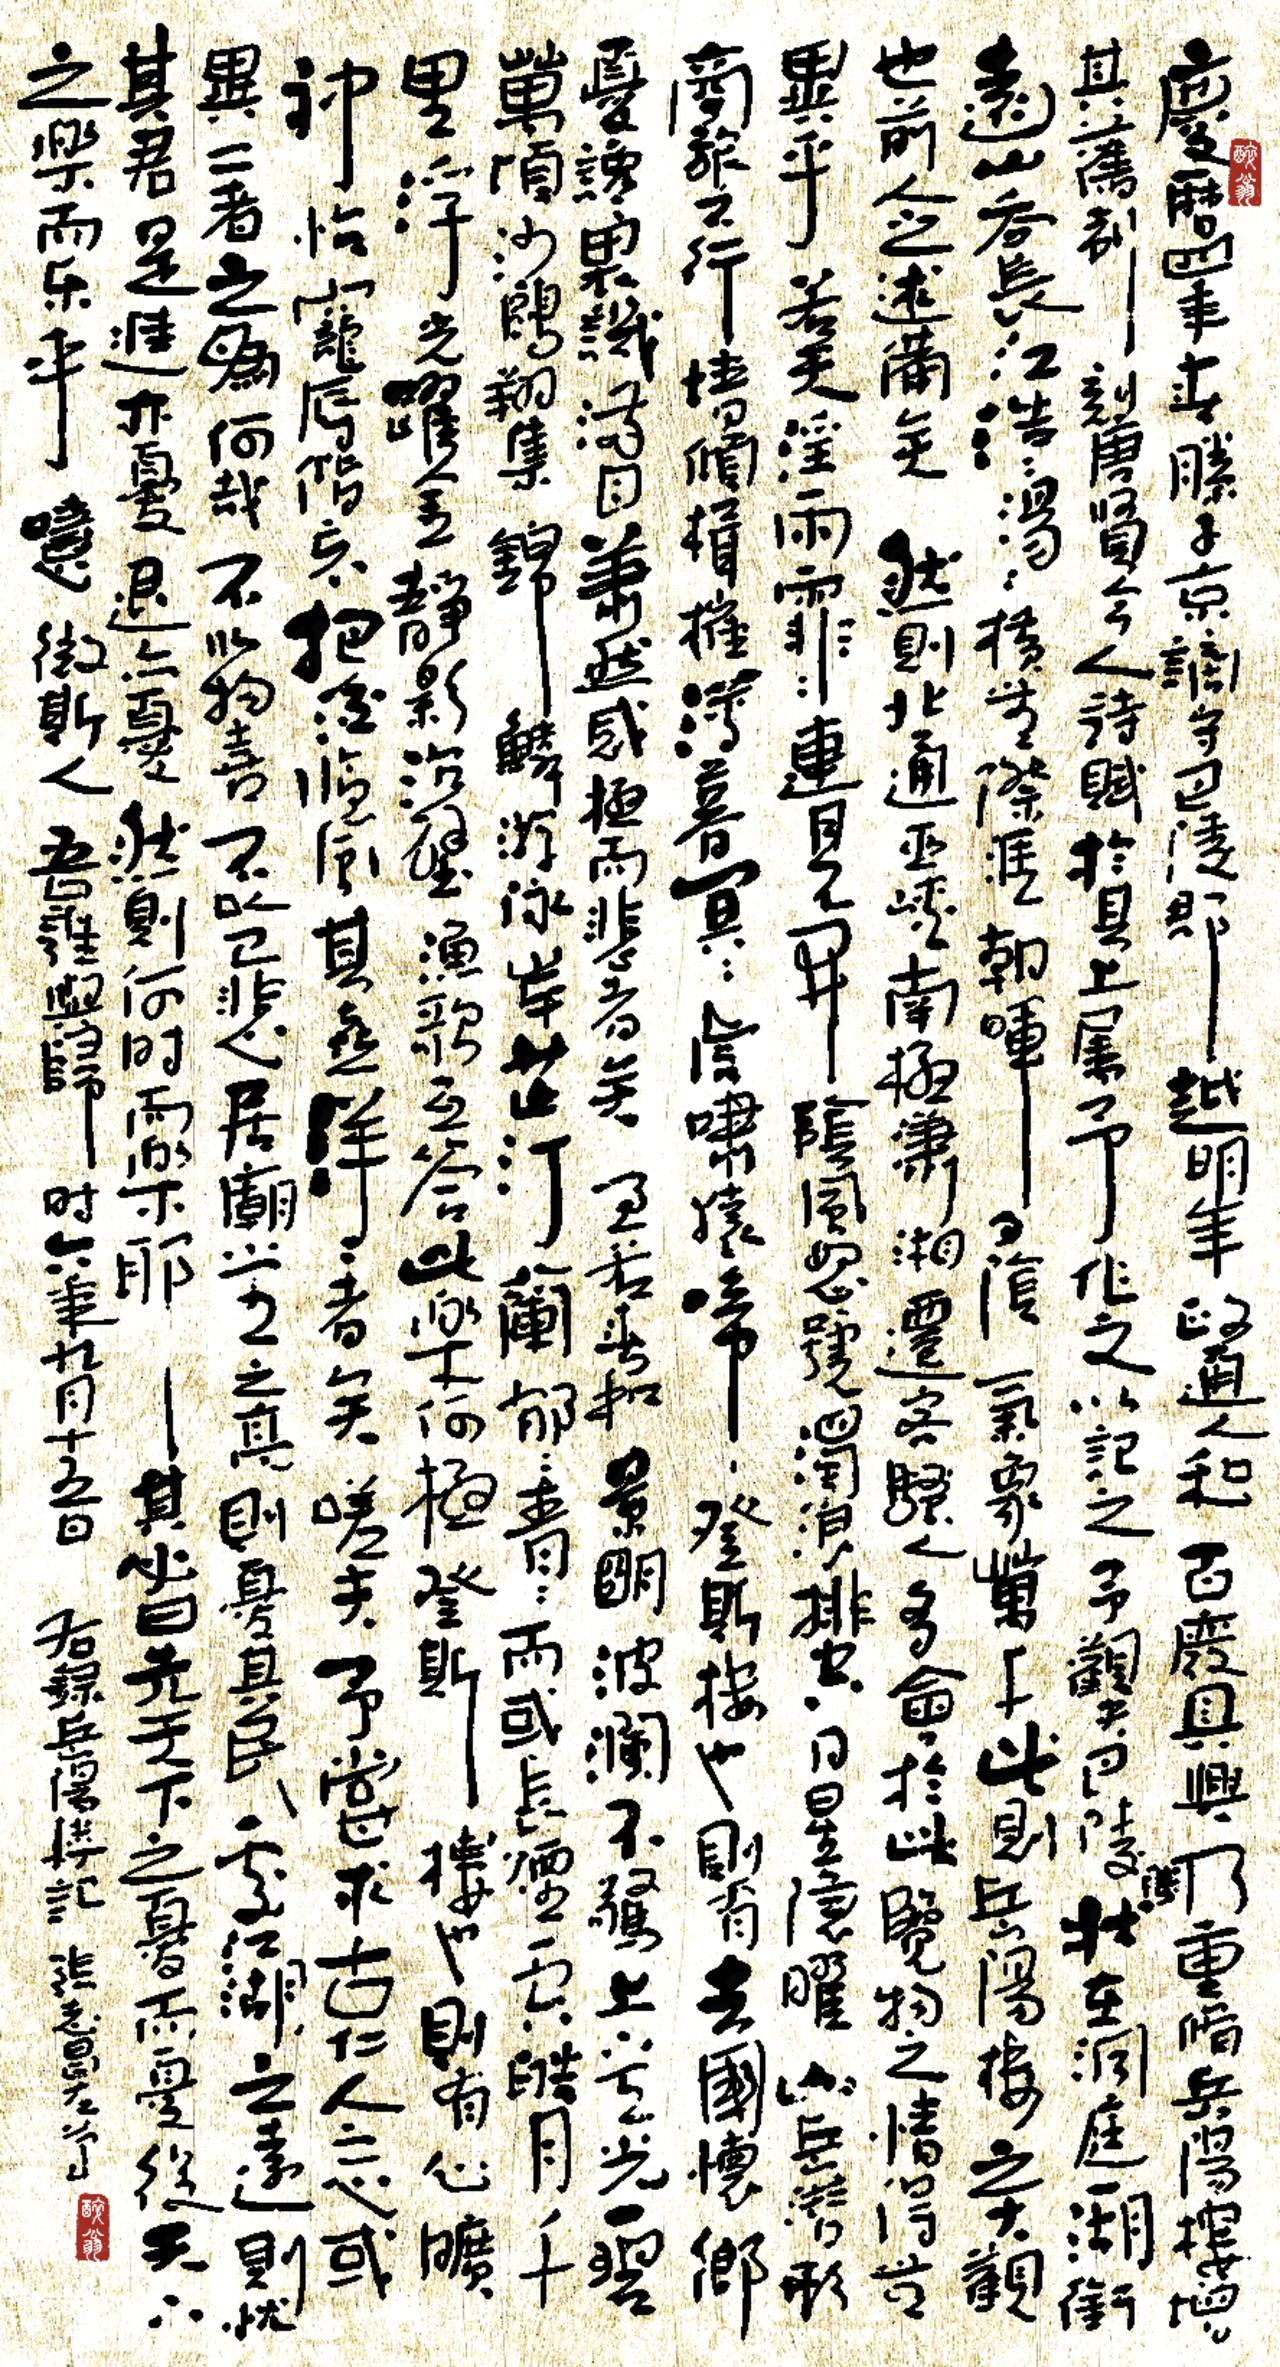 慶曆四年春滕子京謫守巴陵郡越明年政通人和百廢具興乃重脩岳陽樓增
其舊制刻唐賢今人詩賦於其上屬予作文以記之予觀夫巴陵勝狀在洞庭一湖銜
遠山吞長江浩浩湯湯橫無際涯朝暉夕陰氣象萬千此則岳陽樓之大觀
也前人之述備矣然則北通巫峽南極瀟湘遷客騷人多會於此覽物之情得無
異乎若夫淫雨霏霏連月不開陰風怒號濁浪排空日星隱曜山岳潛形
商旅不行檣傾楫摧薄暮冥冥虎嘯猿啼登斯樓也則有去國懷鄉
憂讒畏譏滿目蕭然感極而悲者矣至若春和景明波瀾不驚上下天光一碧
萬頃沙鷗翔集錦鱗游泳岸芷汀蘭郁郁青青而或長煙一空皓月千
里浮光躍金靜影沉璧漁歌互答此樂何極登斯樓也則有心曠
神怡寵辱偕忘把酒臨風其喜洋洋者矣嗟夫予嘗求古仁人之心或
異二者之為何哉不以物喜不以己悲居廟堂之高則憂其民處江湖之遠則憂
其君是進亦憂退亦憂然則何时而樂耶其必曰先天下之憂而憂後天下
之樂而乐乎噫微斯人吾誰與歸时六年九月十五日 右錄岳陽樓記
醉翁
醉翁